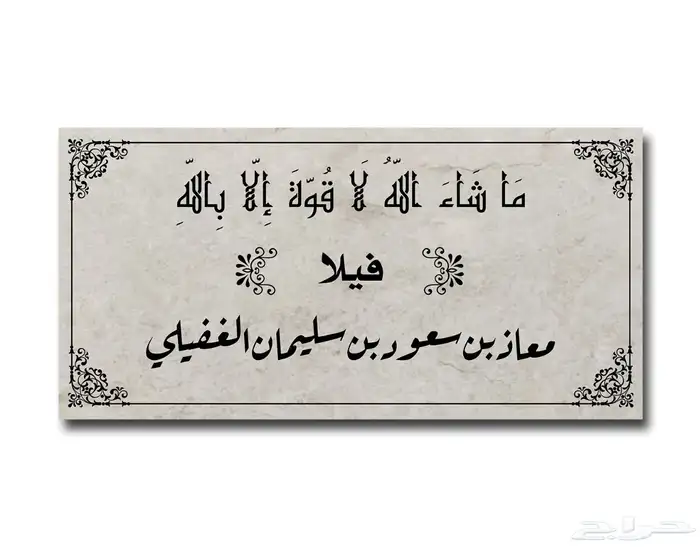 مَا شَاءَ اللَّهُ لَا قُوَّةَ إِلَّا بِاللَّهِ
فيلا
معاذ بن سعود بن سليمان الغفيلي
حراج